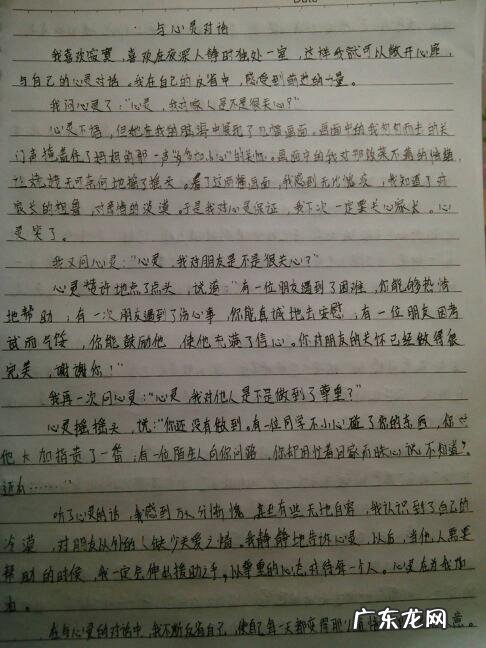 与心灵对话
我喜欢寂寞，喜欢在夜深人静时独处一室，这样我就可以敞开心扉，
与自己的心灵对话。我在自己的反省中，感受到前进的力量。
我问心灵了："心灵，我对家人是不是很关心？"
心灵不语，但她在我的脑海中展现了几幅画面。画面中的我匆匆而去的关
门声掩盖住了妈妈的那一声"多加小心"的关怀。画面中的我对那饭菜不喜的
无可奈何地摇了摇头。看了这两幅画面，我感到无比惭愧，我知道了对
家长的，对亲情的淡漠。于是我对心灵保证，我下次一定要关心家长。心
灵笑了。
我又问心灵："心灵，我对朋友是不是很关心？"
心灵赞许地点了点头，说道："有一位朋友遇到了困难，你能够热情
地帮助；有一次朋友遇到了伤心事，你能真诚地去安慰；有一位朋友因考
试而气馁，你能鼓励他，使他充满了信心。你对朋友的关怀已经做得很
完美，谢谢你！"
我再一次问心灵："心灵，我对他人是不是做到了尊重？"
心灵摇摇头，说："你还没有做到。有一位同学不小心碰了你的东西，你对
他大加指责了一番；有一位陌生人向你问路，你却因忙着回家而昧心说'不知道'。
还有……"
听了心灵的话，我感到万分惭愧，甚至有些无地自容，我认识到了自己的
冷漠，对朋友以外的人缺少关爱之情。我静静地告诉心灵，以后，当他人需要
帮助的时候，我一定会伸出援助之手，以尊重的心态对待每一个人。心灵在为我加
油。
在与心灵的对话中，我不断反省自己，使自己每一天都变得那么
广东龙网